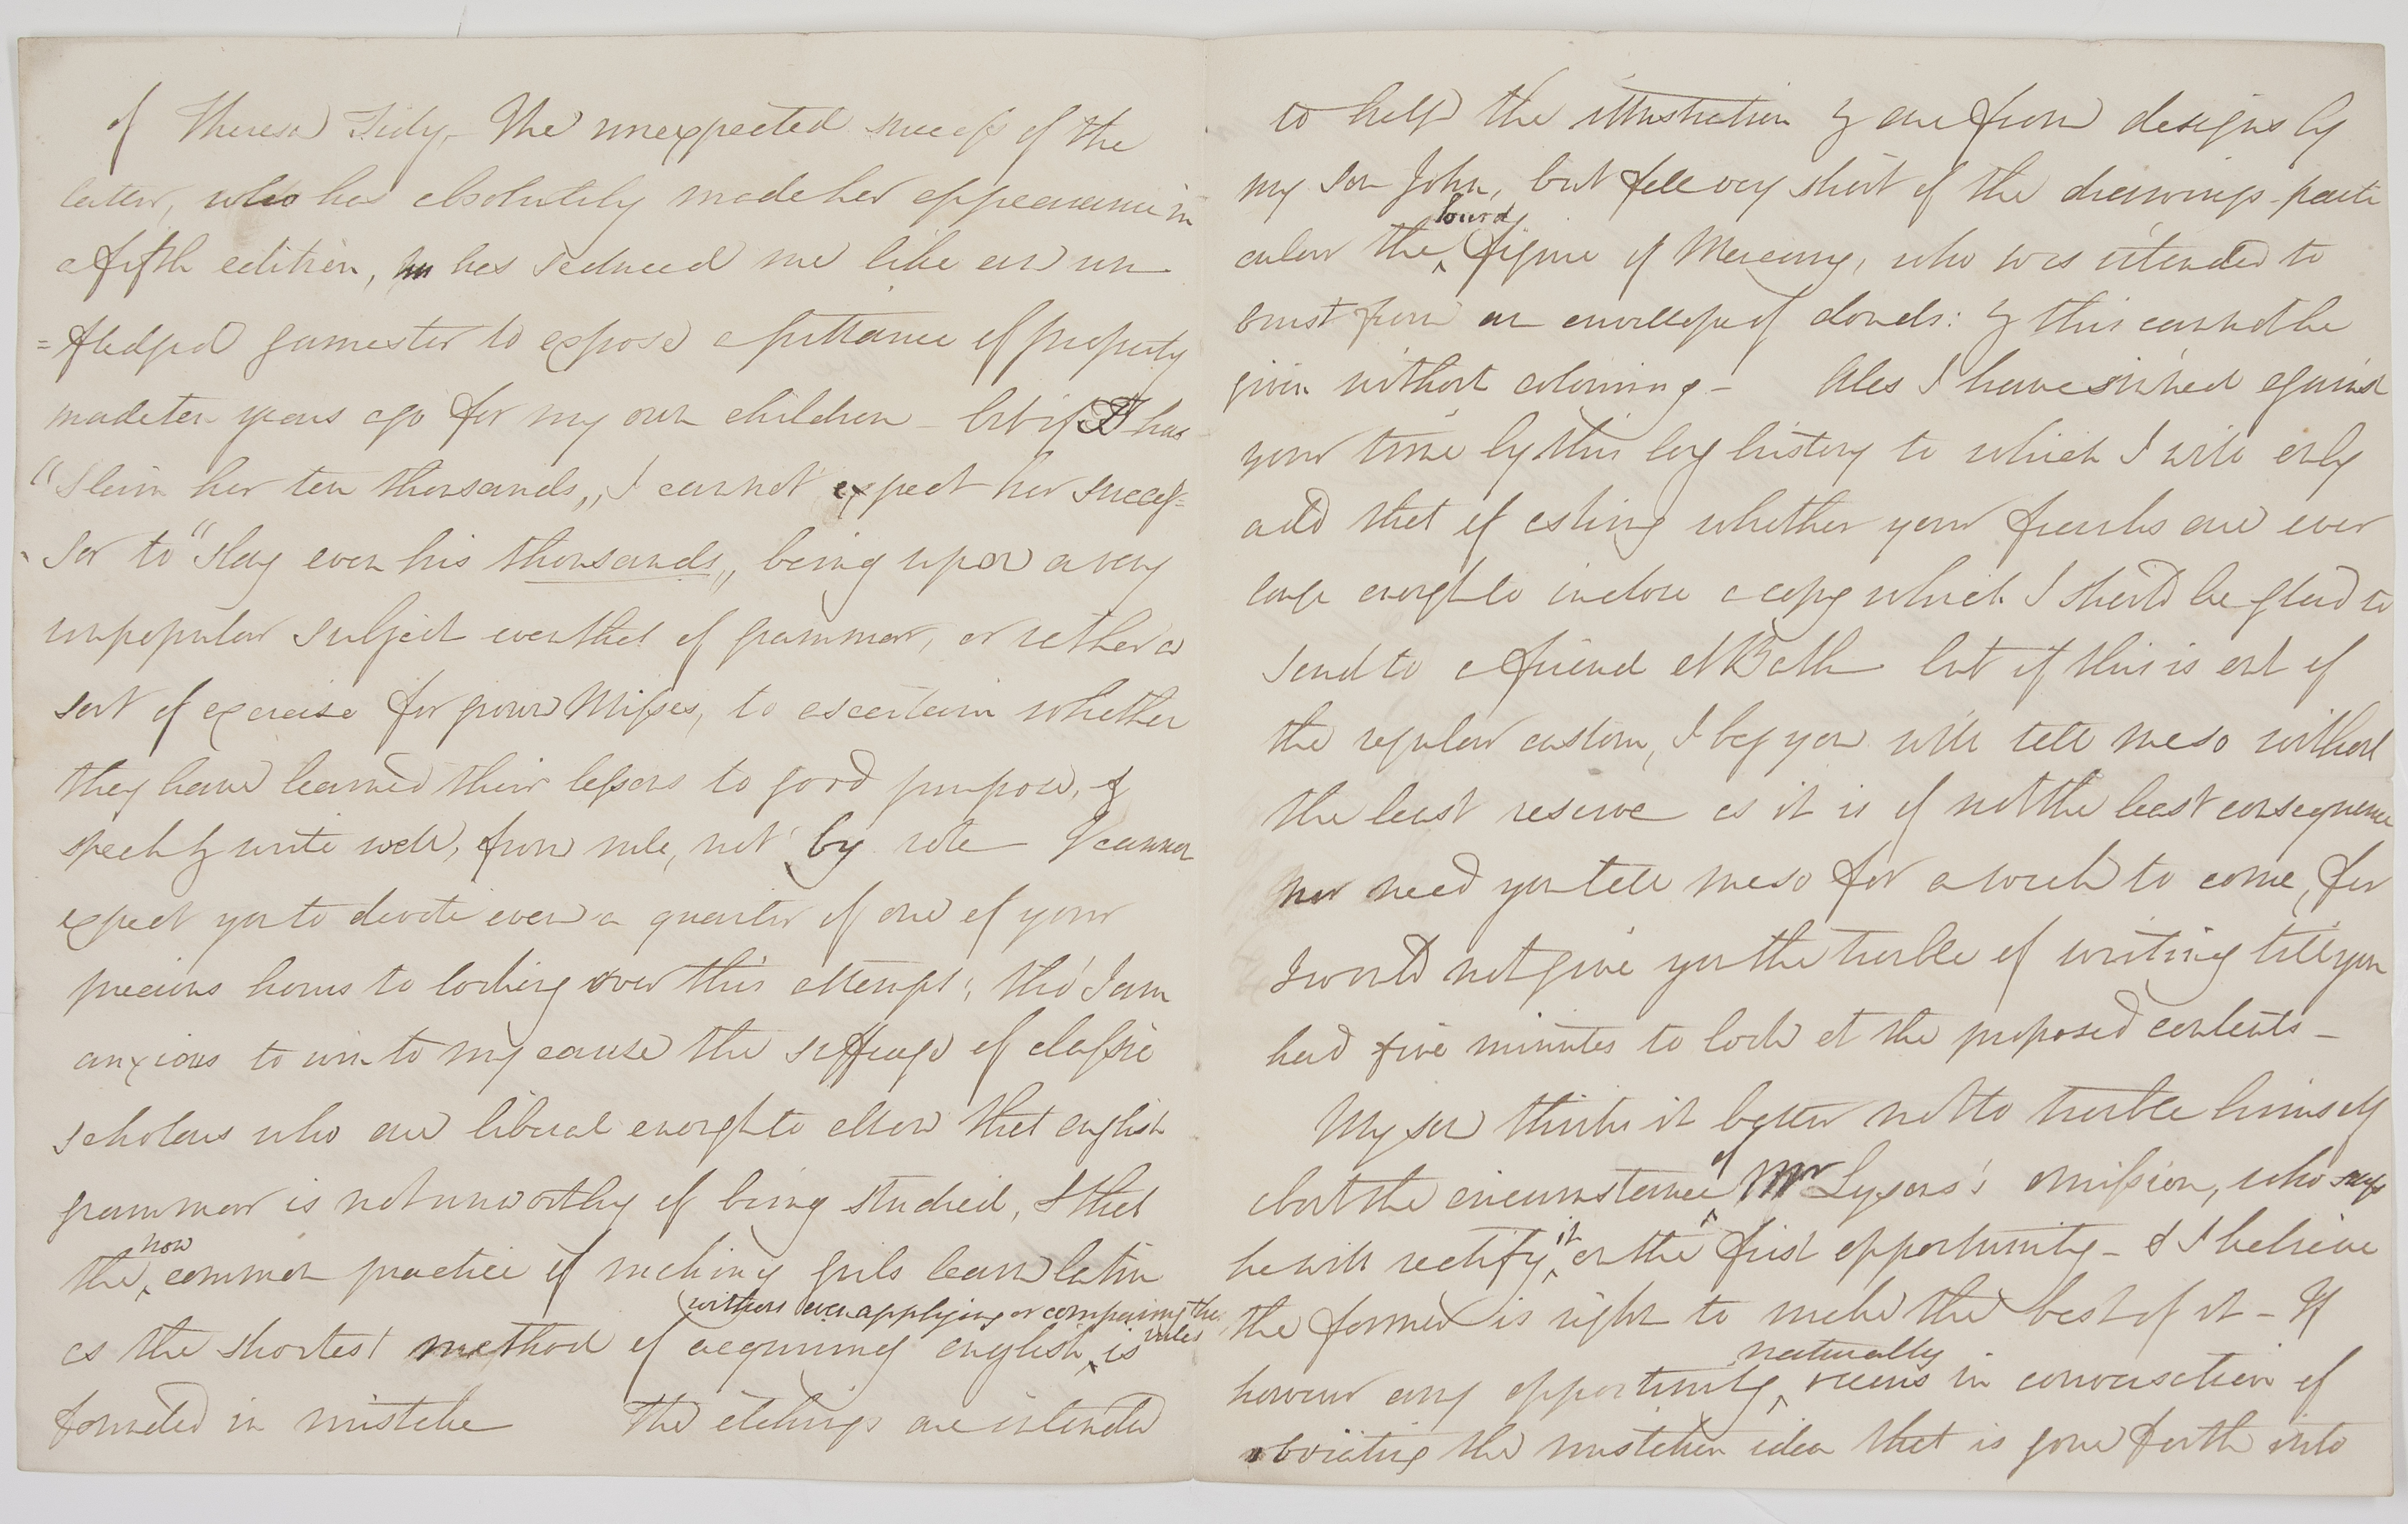 of Theresa Tidy, The unexpected success of the
latter, who has absolutely made her appearance in
a fifth edition, has seduced me like an un
=fledged gamester to expose a pittance of property
made ten years ago for my own children - but if I has
"Slain her ten thousands,, I cannot expect her succes=
sor to "slay even his thousands,, being upon a very
unpopular subject even that of grammar, or rather a
sort of exercise for grown Misses, to ascertain whether
they have learned their lessons to good purpose, &
speak & write well, from rule, not by rote I cannot
expect you to devote even a quarter of one of your
precious hours to looking over this attempt; tho' I am
anxious to win to my cause the suffrage of classic
scholars who are liberal enough to allow that english
grammar is not unworthy of being studied, & that
the now common practice of making girls learn latin
as the shortest method of acquiring english without even applying or comparing the rules is
founded in mistake The etchings are intended
to help the illustration & are from designs by
my son John, but fall very short of the drawings - parti
cular the figure of Mercury, who was intended to
burst from an envellope of clouds: & this cannot be
given without colouring - Alas I have sinned against
your time by this long history to which I will only
add that of asking whether your franks are ever
large enough to inclose a copy which I should be glad to
send to a friend at Bath but if this is out of
the regular custom, I beg you will tell me so without
the least reserve as it is of not the least consequence
nor need you tell me so for a week to come, for
I would not give you the trouble of writing till you
had five minutes to look at the proposed contents -
My son thinks it better not to trouble himself
about the circumstance of Mr Lysons's omission, who says
he will rectify it on the first opportunity - & I believe
the former is right to make the best of it - If
however any opportunity naturally occurs in conversation of
obviating the mistaken idea that is gone forth into